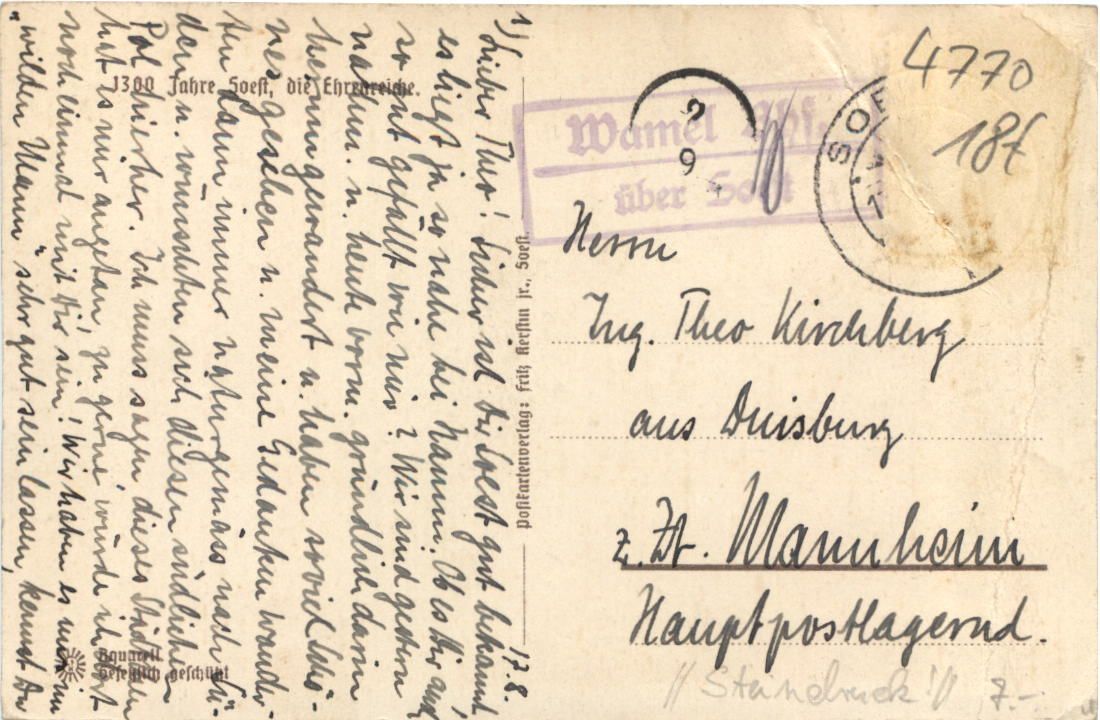 1) 17.8.
Lieber Theo! Sicher ist Dir Soest gut bekannt,
es liegt ja so nahe bei Hamm. Ob es Dir auch
so gut gefällt wie mir? Wir sind gestern
nachm. u. heute vorm. gründlich darin
herumgewandert u. haben soviel Schö-
nes gesehen u. meine Gedanken wander-
ten dann immer naturgemäss nach Sü-
den u. wünschten sich diesen südlichen
Pol hierher. Ich muss sagen dieses Städtchen
hat es mir angetan, zu gerne würde ich dort
noch einmal mit Dir sein! Wir haben es uns im
„wilden Mann" sehr gut sein lassen, kennst Du
1300 Jahre Soest, die Ehrenreiche.
Aquarell
Gesetzlich geschützt
Postkartenverlag: Fritz Kerstin jr., Soest.
Wamel Bhf.
über Soest
2
9
SOE
4770
18t
Herrn
Ing. Theo Kirchberg
aus Duisburg
z. Zt. Mannheim
Hauptpostlagernd.
// Steindruck! // 7.-